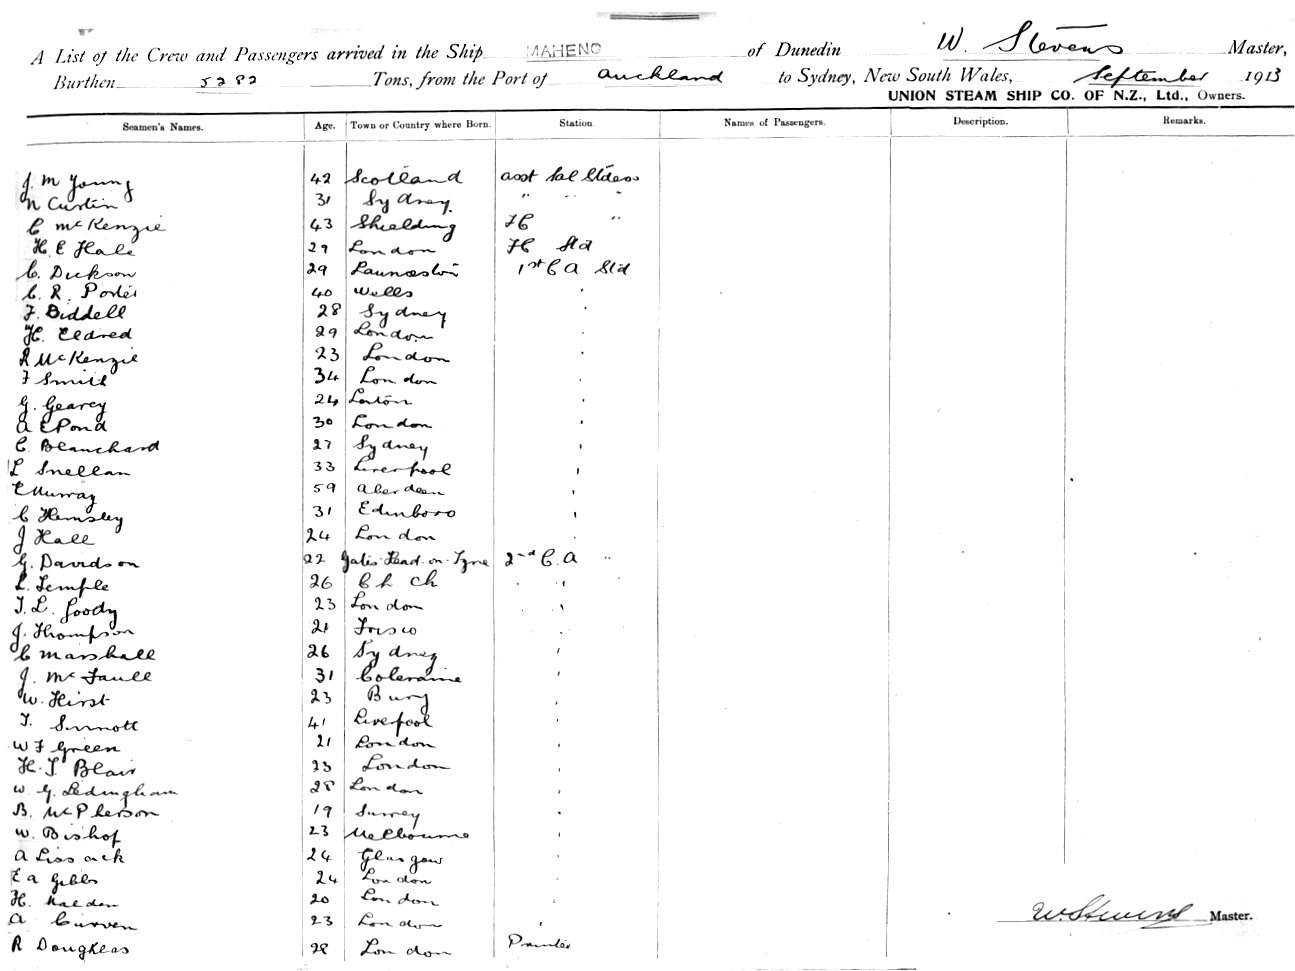 A List of the Crew and Passengers arrived in the Ship MAHENO of Dunedin W. Stevens Master,
Burthen 5282 Tons, from the Port of Auckland to Sydney, New South Wales, September 1913
UNION STEAM SHIP CO. OF N.Z., Ltd., Owners.
Seamen's Names. Age. Town or Country where Born. Station Names of Passengers. Description. Remarks.
J. M Young 42 Scotland asst Sal
N Curtin 31 Sydney. " " "
C McKenzie 43 Shielding FC "
H. E Hale 29 London FC Std
C. Dickson 29 Launceston 1st C A Std
C. R. Porter 40 Wells
F. Biddell 28 Sydney
H. Eldred 29 London
R McKenzie 23 London
F Smith 34 London
G. Gearey 24
A E Pond 30 London
C. Blanchard 27 Sydney
L Snellan 33 Liverpool
E Murray 59 Aberdeen
C Hemsley 31 Edinboro
J Hall 24 London
G. Davidson 22 Gates-Head-on-Tyne 2nd C. A "
L. Temple 26 Ch Ch
T. L. Goody 23 London
J. Thompson 21 Frisco
C Marshall 26 Sydney
J. McFaull 31 Coleraine
W. Hirst 23 Bury
T. Sinnott 41 Liverpool
W F Green 21 London
H. T Blair 23 London
W. G. Ledingham 28 London
B. McPherson 19 Surrey
W. Bishop 23 Melbourne
A Lissack 24 Glasgow
E A Gibbs 24 London
H. Malden 20 London
A Curven 23 London
R Doughlas 28 London Printer
W. Stevens Master.